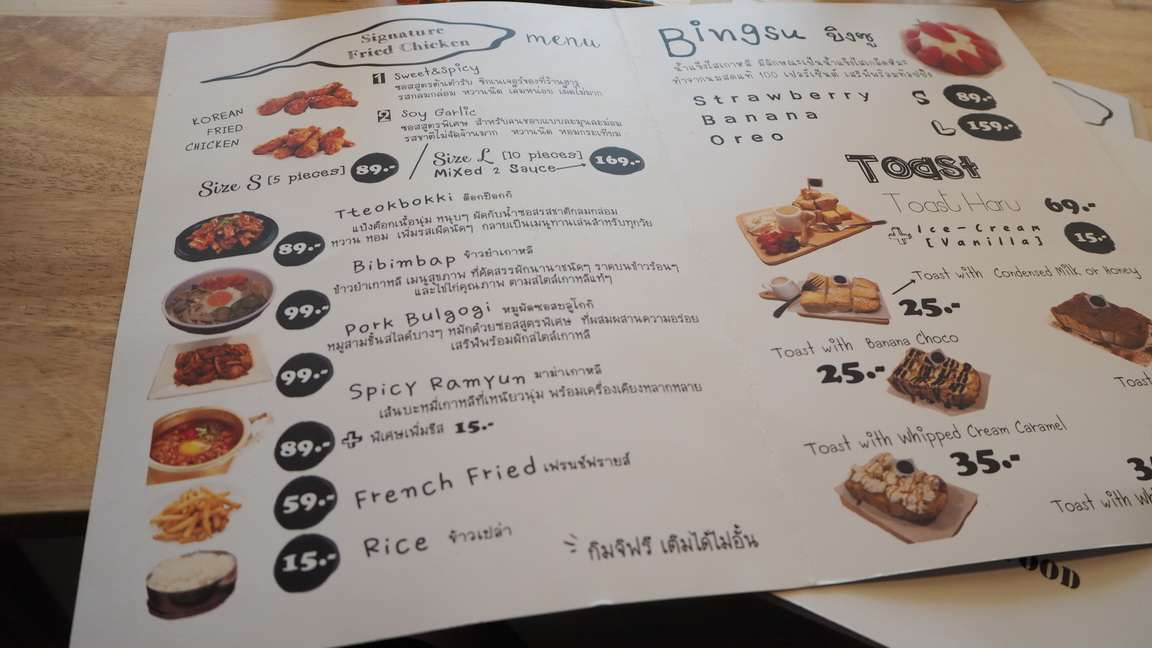 Signature
Fried Chicken
menu
KOREAN
FRIED
CHICKEN
1 Sweet&Spicy
ซอสสูตรต้นตำรับ ซิกเนเจอร์ของที่ร้านฮารุ
รสกลมกล่อม หวานนิด เค็มหน่อย เผ็ดไม่มาก
2 Soy Garlic
ซอสสูตรพิเศษ สำหรับคนชอบแบบละมุนละม่อม
รสชาติไม่จัดจ้านมาก หวานนิด หอมกระเทียม
Size S [5 pieces] 89.-
Size L [10 pieces] 169.-
Mixed 2 Sauce
Tteokbokki ต๊อกป๊อกกิ
แป้งต๊อกเนื้อนุ่ม หนุบๆ ผัดกับน้ำซอสรสชาติกลมกล่อม
หวาน หอม เพิ่มรสเผ็ดนิดๆ กลายเป็นเมนูทานเล่นสำหรับทุกวัย
89.-
Bibimbap ข้าวยำเกาหลี
ข้าวยำเกาหลี เมนูสุขภาพ ที่คัดสรรผักนานาชนิดๆ ราดบนข้าวร้อนๆ
และไข่ไก่คุณภาพ ตามสไตล์เกาหลีแท้ๆ
99.-
Pork Bulgogi หมูผัดซอสบลูโกกิ
หมูสามชั้นสไลด์บางๆ หมักด้วยซอสสูตรพิเศษ ที่ผสมผสานความอร่อย
เสริฟพร้อมผักสไตล์เกาหลี
99.-
Spicy Ramyun มาม่าเกาหลี
เส้นบะหมี่เกาหลีที่เหนียวนุ่ม พร้อมเครื่องเคียงหลากหลาย
89.- + พิเศษเพิ่มชีส 15.-
59.- French Fried เฟรนช์ฟรายส์
15.- Rice ข้าวเปล่า
กิมจิฟรี เติมได้ไม่อั้น
Bingsu บิงซู
น้ำแข็งใสเกาหลี มีลักษณะเป็นน้ำแข็งใสเกล็ดหิมะ
ทำจากนมสดแท้ 100 เปอร์เซ็นต์ เสริฟพร้อมท้อปปิ้ง
Strawberry
Banana
Oreo
S 89.-
L 159.-
Toast
Toast Haru 69.-
+ Ice-Cream
[Vanilla] 15.-
Toast with Condensed Milk or Honey
25.-
Toast with Banana Choco
25.-
Toast with Whipped Cream Caramel
35.-
Toast
3
Toast with Wh
OOD